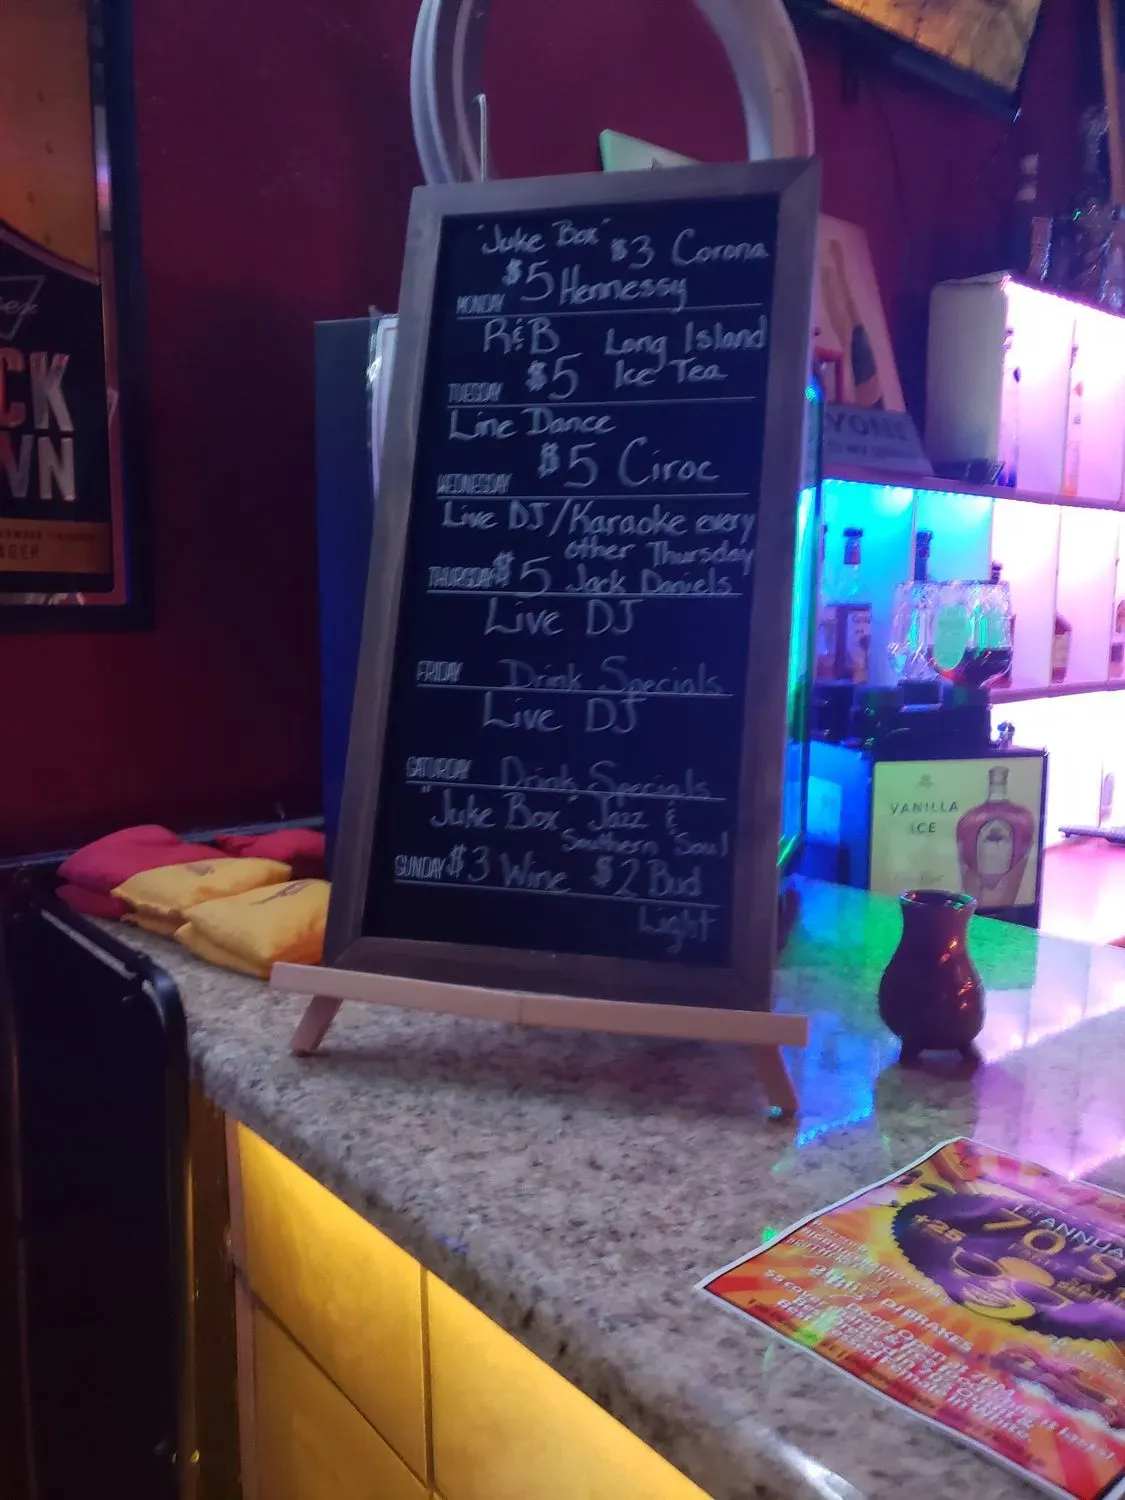 "Juke Box" $3 Corona
$5 Hennessy
MONDAY
R&B Long Island
$5 Ice Tea
TUESDAY
Line Dance
$5 Ciroc
WEDNESDAY
Live DJ/Karaoke every
other Thursday
THURSDAY $5 Jack Daniels
Live DJ
FRIDAY Drink Specials
Live DJ
SATURDAY Drink Specials
"Juke Box" Jazz &
Southern Soul
SUNDAY $3 Wine $2 Bud
Light
CK
WN
AGER
YONE
VANILLA
ICE
1ST ANNUA
70'S
+25
DJ BRAKES